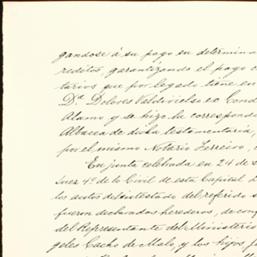 gandose á su pago en determina
reditos, garantizando el pago c
tarios que por legado tiene en
Dª Dolores Valdivielso Cond
Alamo y se hizo la correspond
Albacea de dicha testamentaria,
por el mismo Notario Ferreiro,
En junta celebrada en 24 de s
Juez 4º de lo Civil de esta Capital d
los autos del intestado del referido s
fueron declarados herederos, de conf
del Representante del Ministerio
geles Cacho de Malo, y los hijos